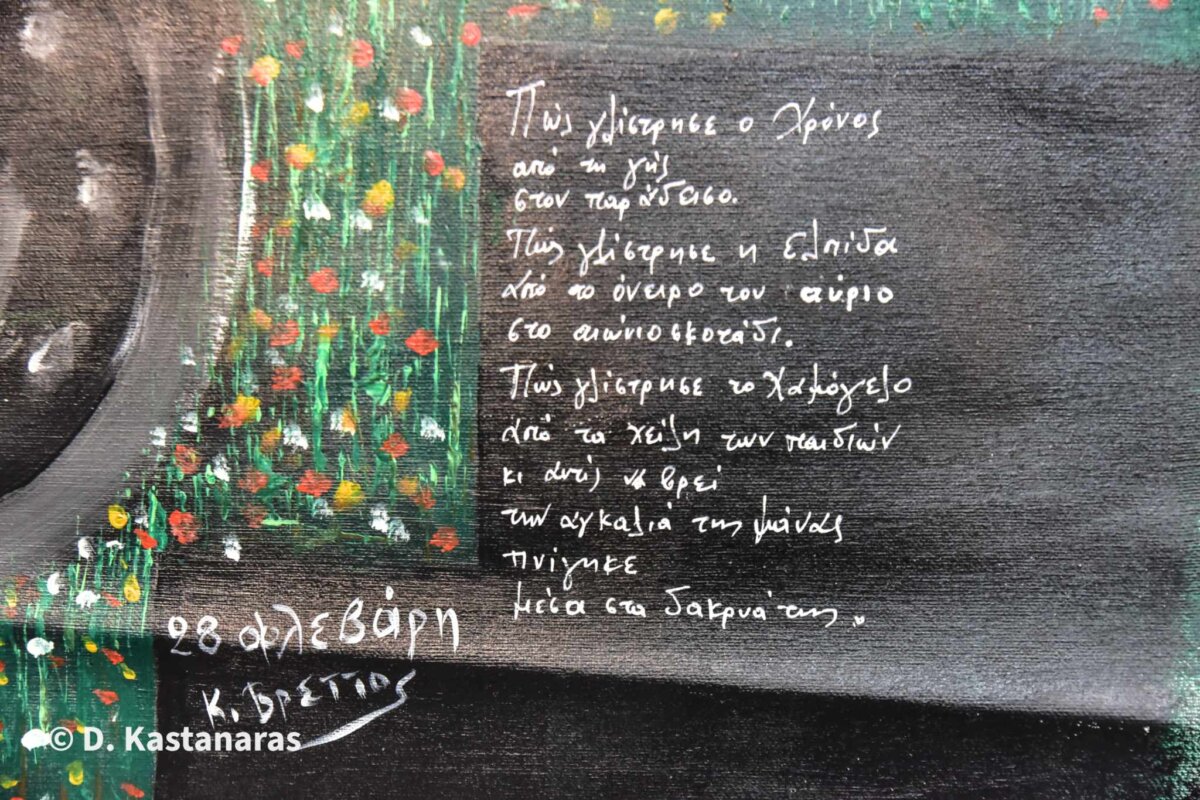 Πώς γλίστρησε ο χρόνος
από τη γής
στον παράδεισο.
Πώς γλίστρησε η ελπίδα
από το όνειρο του αύριο
στο αιώνιο σκοτάδι.
Πώς γλίστρησε το χαμόγελο
από τα χείλη των παιδιών
κι αντίς να βρεί
την αγκαλιά της μάνας
πνίγηκε
μέσα στα δακρυά της.
28 Φλεβάρη
Κ. Βρεττος
© D. Kastanaras